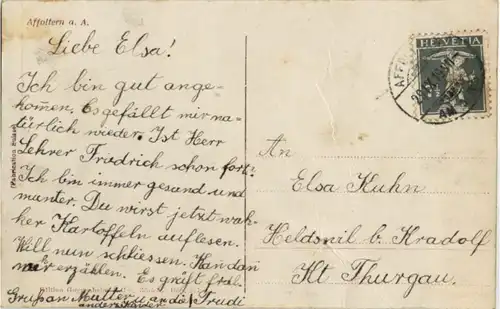 Affoltern a. A.
Liebe Elsa!
Ich bin gut ange-
kom̄en. Es gefällt mir na-
türlich wieder. Ist Herr
Lehrer Friedrich schon fort?
Ich bin immer gesund und
munter. Du wirst jetzt
Kartoffeln auflesen.
Will nun schliessen. Kan dan̄
erzählen. Es grüßt
Gruss an Mutter u. an die Trudi
An
Elsa Kuhn
Heldsnil b. Kradolf
Kt Thurgau.
HELVETIA